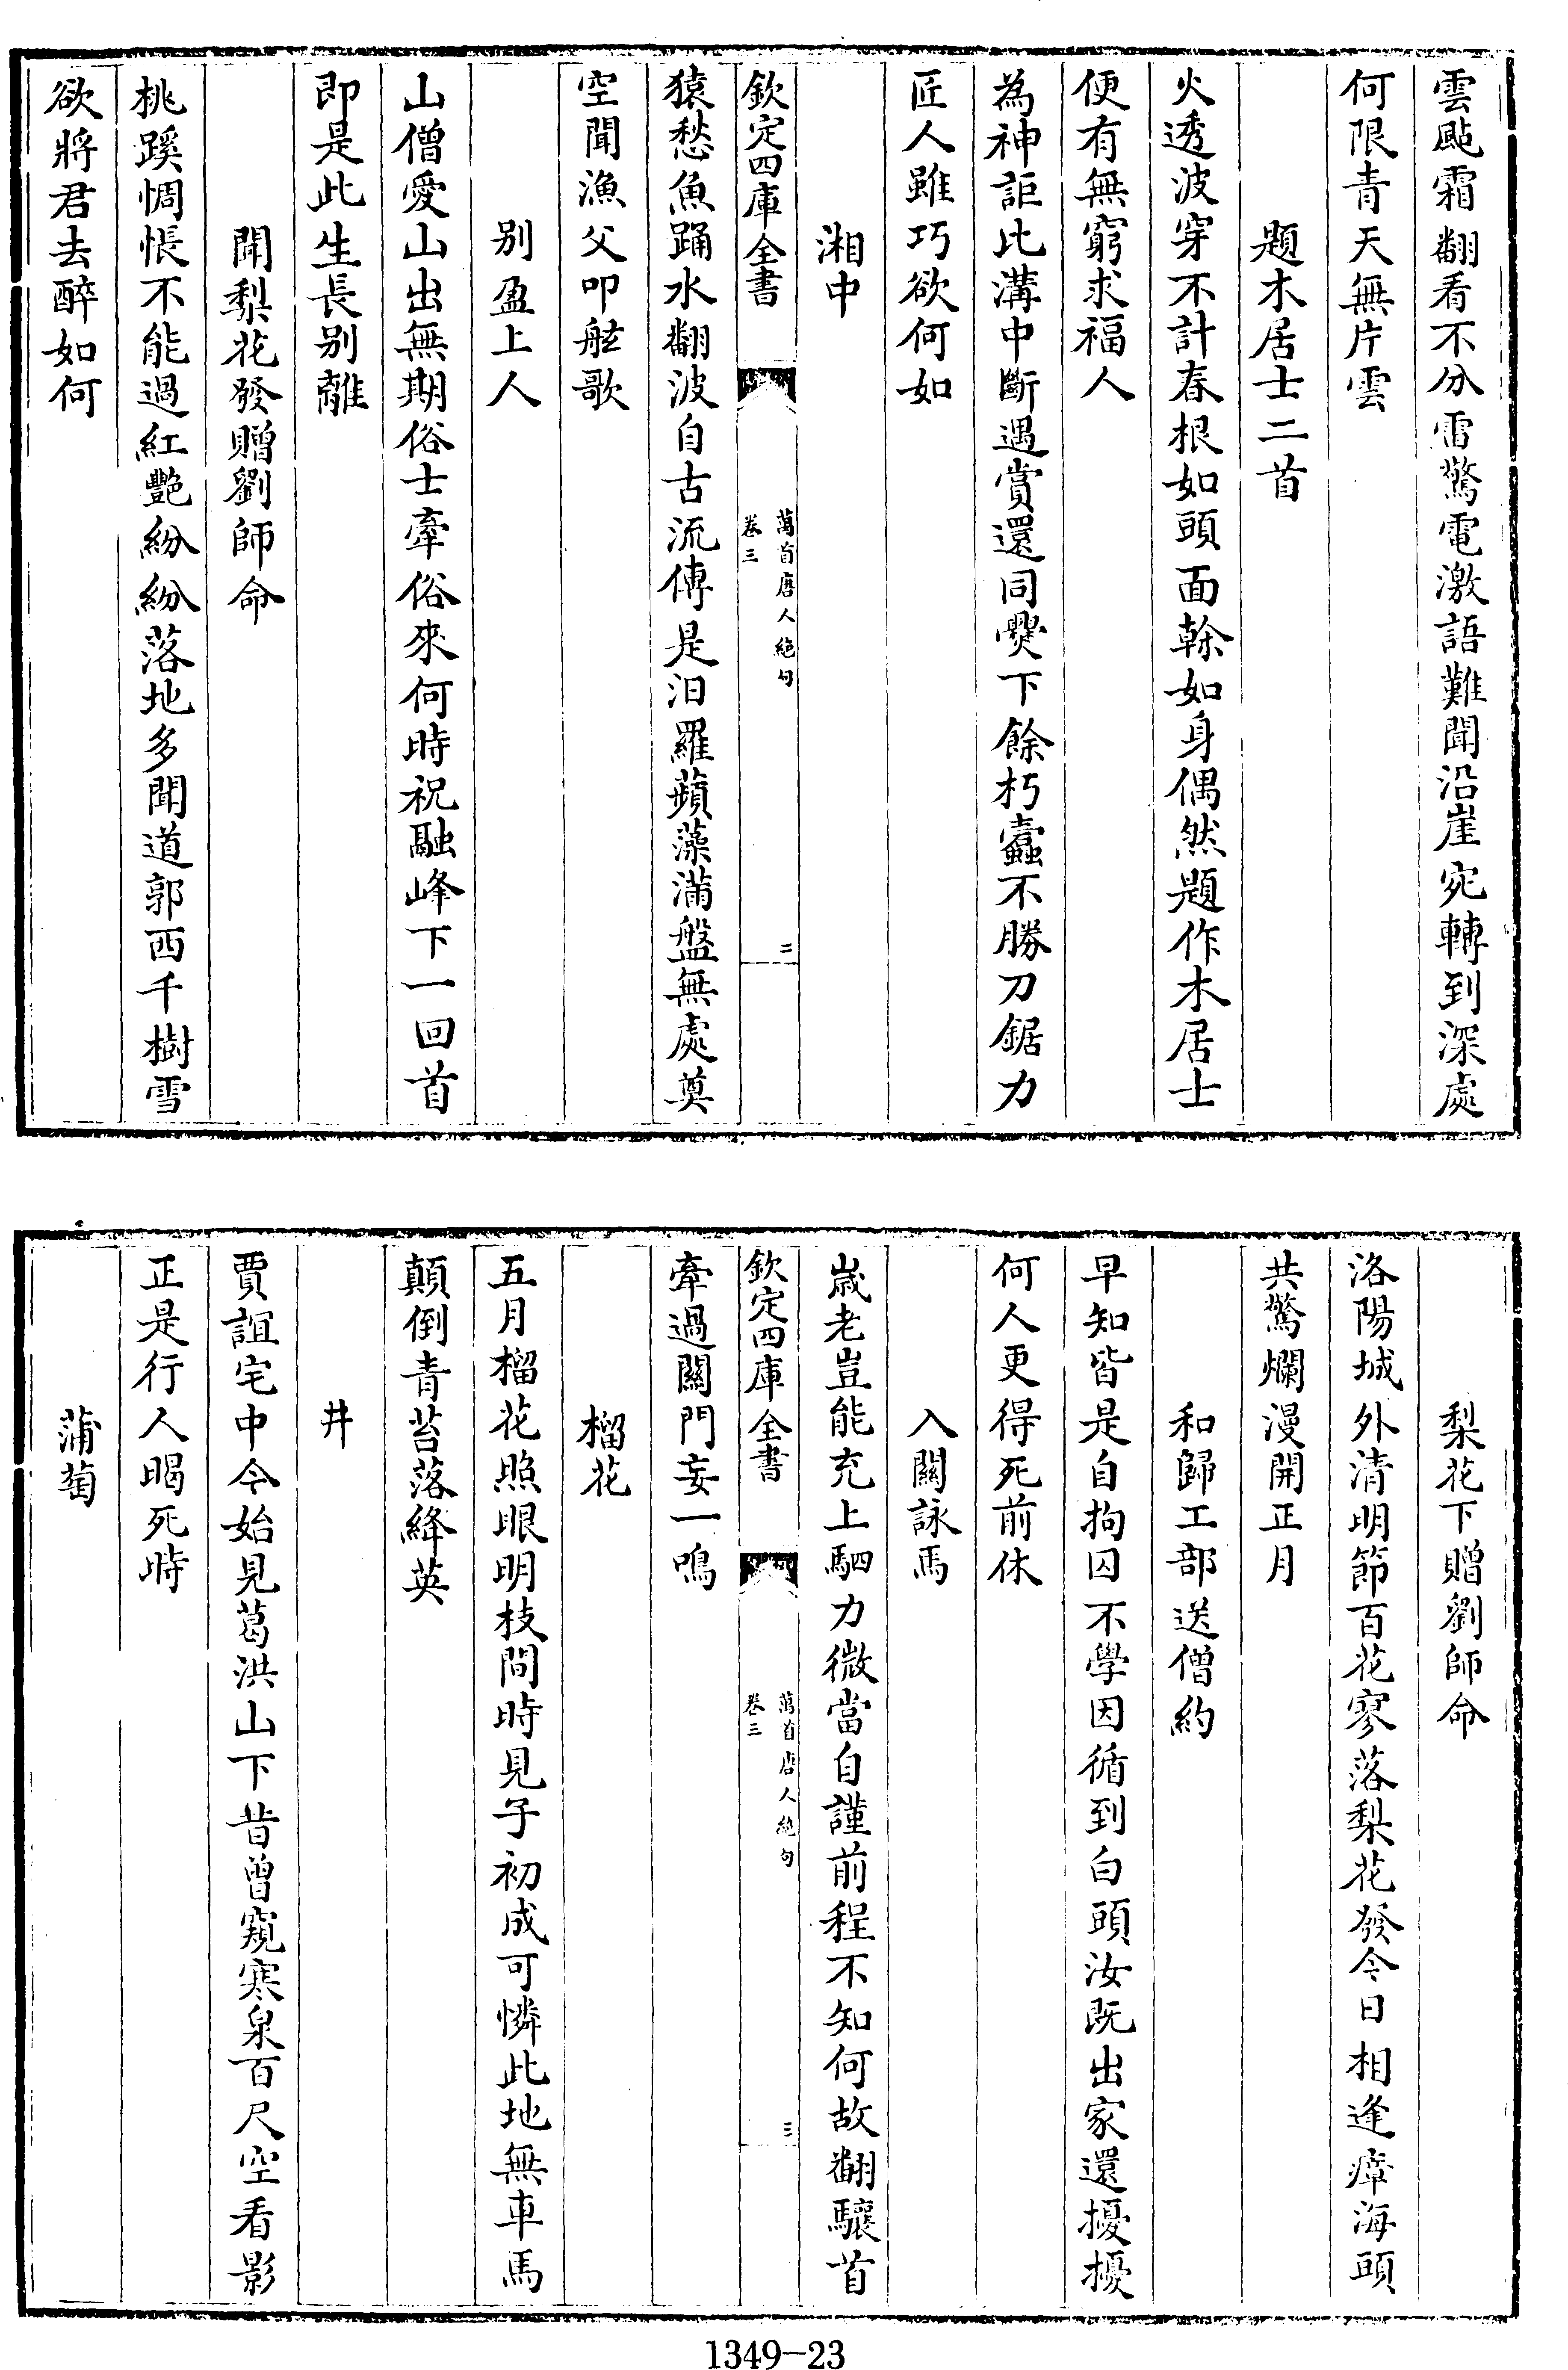 雲颭霜翻看不分雷驚電激語難聞沿崖宛轉到深處
何限青天無片雲
題木居士二首
火透波穿不計春根如頭面榦如身偶然題作木居士
便有無窮求福人
為神詎比溝中斷遇賞還同爨下餘朽蠹不勝刀鋸力
匠人雖巧欲何如
湘中
欽定四庫全書
萬首唐人絶句
卷三
二
猿愁魚踊水翻波自古流傳是汨羅蘋藻滿盤無處奠
空聞漁父叩舷歌
别盈上人
山僧愛山出無期俗士牽俗來何時祝融峰下一回首
即是此生長别離
聞梨花發贈劉師命
桃蹊惆悵不能過紅艷紛紛落地多聞道郭西千樹雪
欲將君去醉如何
梨花下贈劉師命
洛陽城外清明節百花寥落梨花發今日相逢瘴海頭
共驚爛漫開正月
和歸工部送僧約
早知皆是自拘囚不學因循到白頭汝既出家還擾擾
何人更得死前休
入關詠馬
嵗老豈能充上駟力微當自謹前程不知何故翻驤首
欽定四庫全書
萬首唐人絶句
卷三
三
牽過關門妄一鳴
榴花
五月榴花照眼明枝間時見子初成可憐此地無車馬
顛倒青苔落絳英
井
賈誼宅中今始見葛洪山下昔曾窺寒泉百尺空看影
正是行人暍死時
蒲萄
1349-23